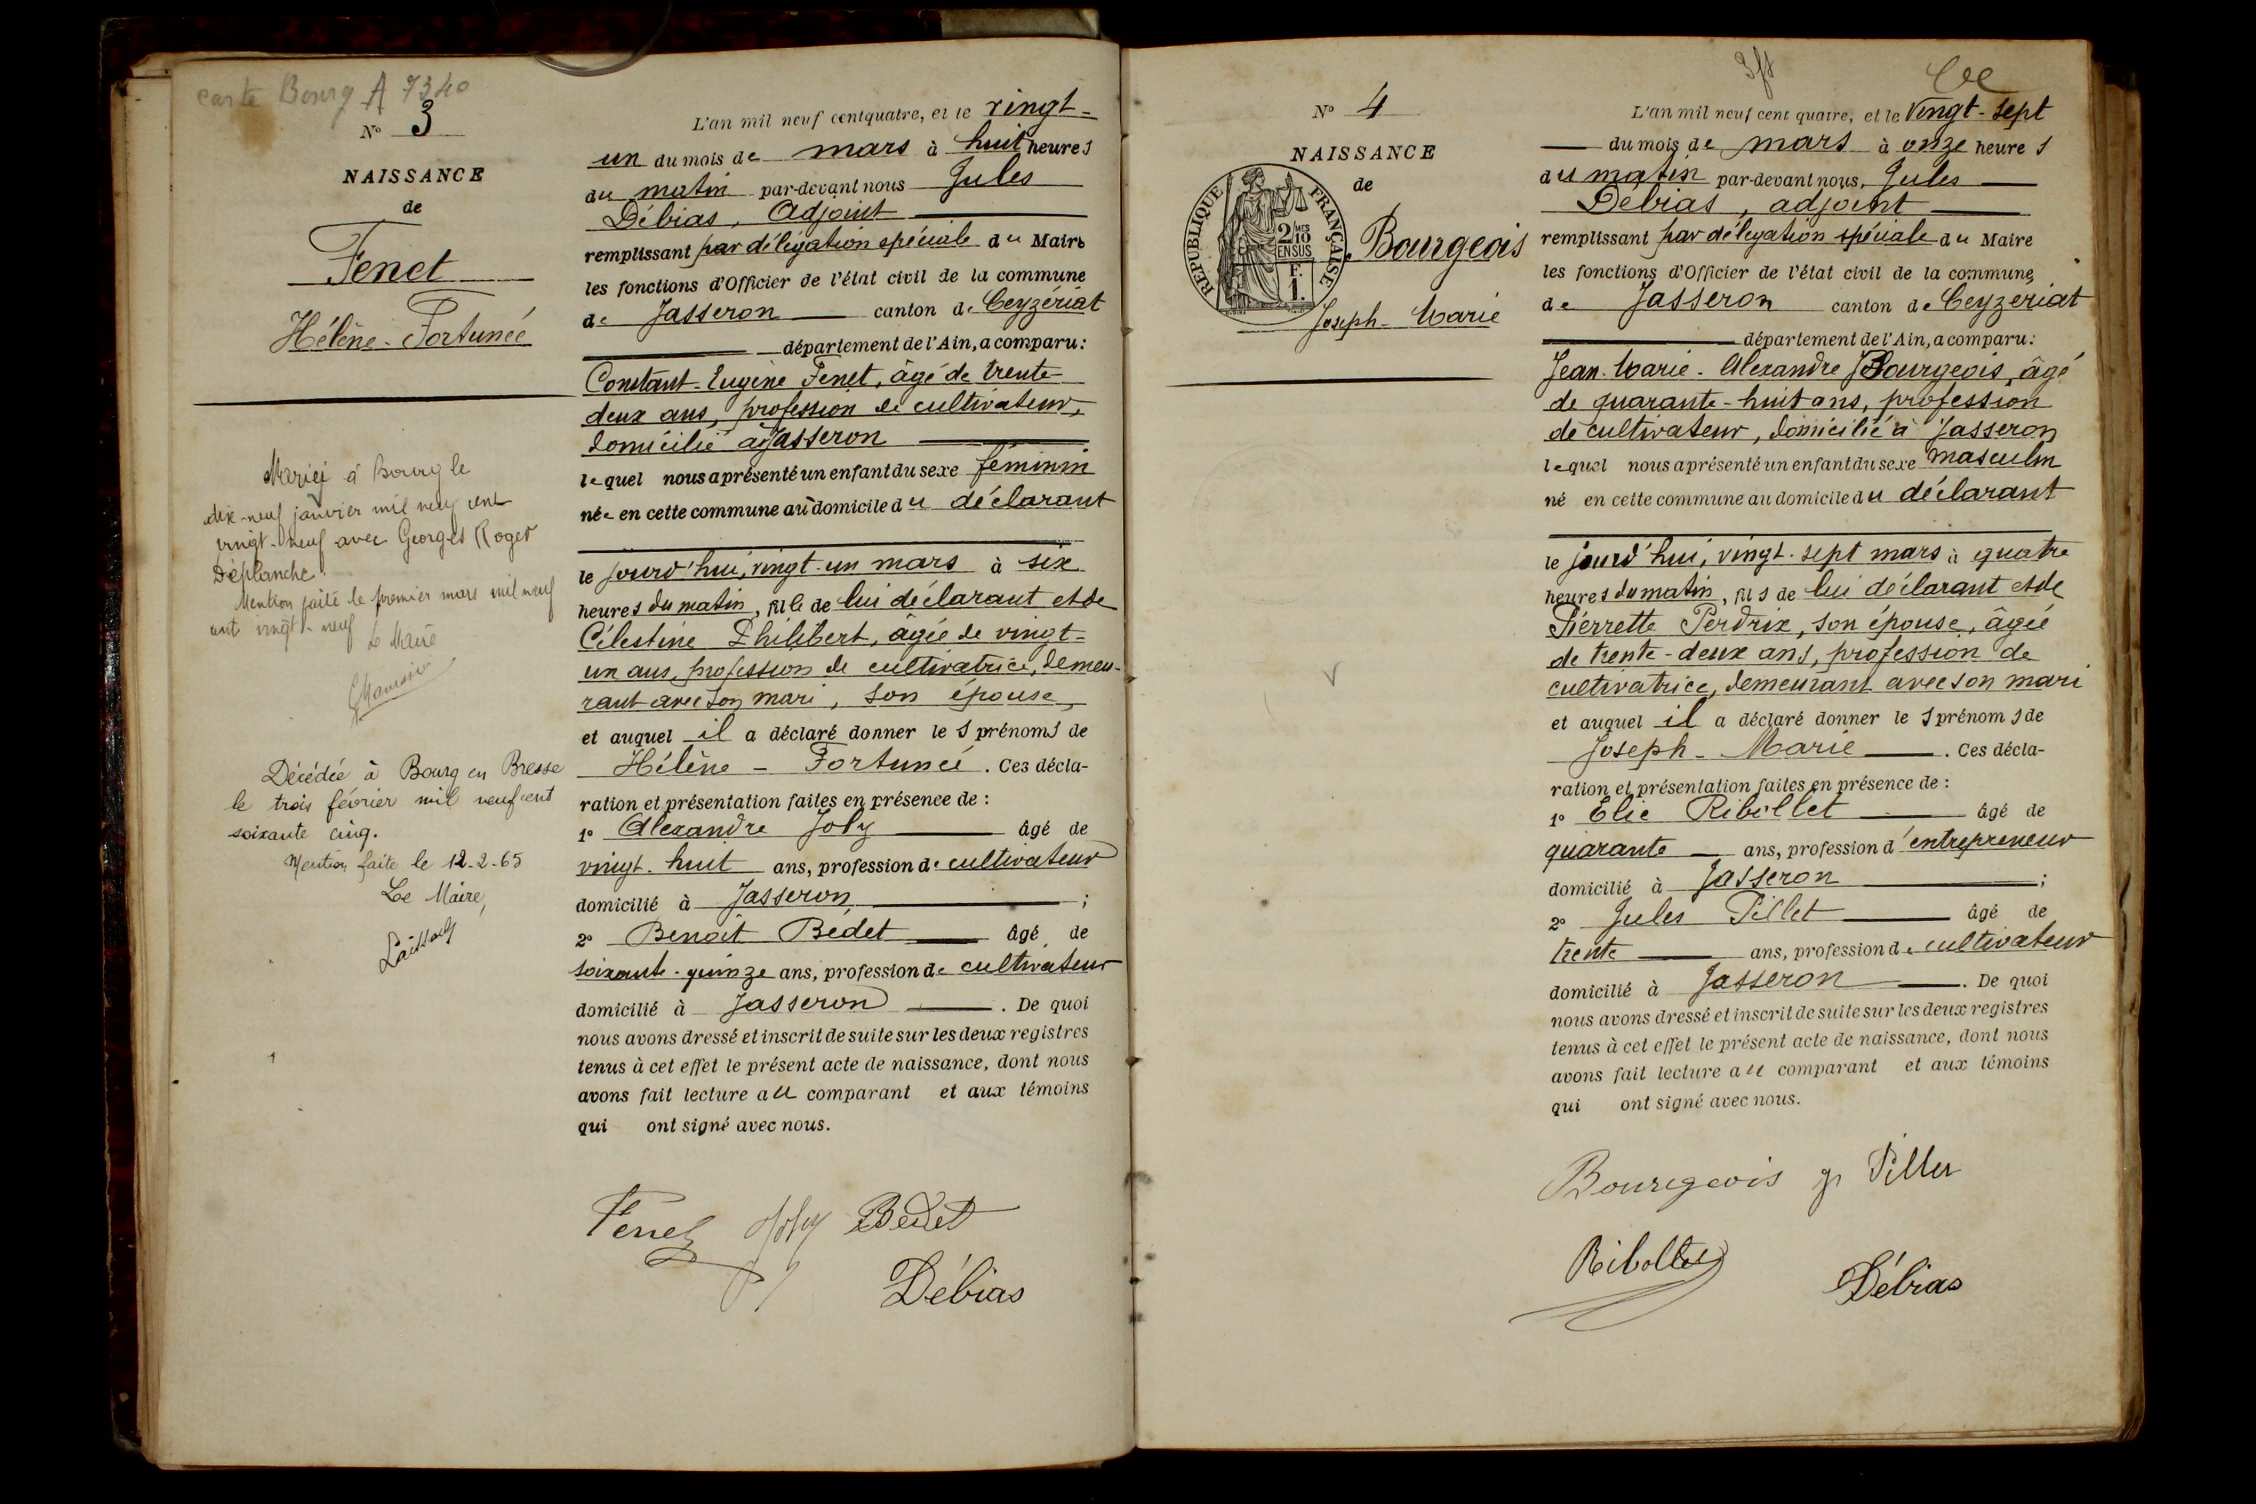 carte Bourg A 7340
N° 3
NAISSANCE
de
Fenet
Hélène-Fortunée
Mariée à Bourg le
dix-neuf janvier mil neuf cent
vingt-neuf avec Georges Roger
Déplanche.
Mention faite le premier mars mil neuf
cent vingt-neuf
Le Maire
Décédée à Bourg en Bresse
le trois février mil neuf cent
soixante cinq.
Mention faite le 12-2-65
Le Maire,
L'an mil neuf cent quatre, et le vingt-
un du mois de mars à huit heures
du matin par-devant nous Jules
Débias, Adjoint
remplissant par délégation spéciale du Maire
les fonctions d'Officier de l'état civil de la commune
de Jasseron canton de Ceyzériat
département de l'Ain, a comparu:
Constant-Eugène Fenet, âgé de trente-
deux ans, profession de cultivateur,
domicilié à Jasseron
lequel nous a présenté un enfant du sexe féminin
née en cette commune au domicile du déclarant
le jourd'hui, vingt-un mars à six
heures du matin, fille de lui déclarant et de
Célestine Philibert, âgée de vingt-
un ans, profession de cultivatrice, demeu-
rant avec son mari, son épouse,
et auquel il a déclaré donner les prénoms de
Hélène - Fortunée. Ces décla-
ration et présentation faites en présence de :
1° Alexandre Joly âgé de
vingt-huit ans, profession de cultivateur
domicilié à Jasseron ;
2° Benoit Bédet âgé de
soixante-quinze ans, profession de cultivateur
domicilié à Jasseron. De quoi
nous avons dressé et inscrit de suite sur les deux registres
tenus à cet effet le présent acte de naissance, dont nous
avons fait lecture au comparant et aux témoins
qui ont signé avec nous.
Fenet Joly Bedet
Débias
N° 4
NAISSANCE
de
RÉPUBLIQUE FRANÇAISE
2/10 MES
EN SUS
F.
1.
Bourgeois
Joseph-Marie
L'an mil neuf cent quatre, et le vingt-sept
du mois de mars à onze heures
du matin par-devant nous, Jules
Débias, adjoint
remplissant par délégation spéciale du Maire
les fonctions d'Officier de l'état civil de la commune
de Jasseron canton de Ceyzériat
département de l'Ain, a comparu:
Jean-Marie-Alexandre Bourgeois, âgé
de quarante-huit ans, profession
de cultivateur, domicilié à Jasseron
lequel nous a présenté un enfant du sexe masculin
né en cette commune au domicile du déclarant
le jourd'hui, vingt-sept mars à quatre
heures du matin, fils de lui déclarant et de
Pierrette Perdrix, son épouse, âgée
de trente-deux ans, profession de
cultivatrice, demeurant avec son mari
et auquel il a déclaré donner les prénoms de
Joseph - Marie. Ces décla-
ration et présentation faites en présence de :
1° Elie Ribollet âgé de
quarante ans, profession d'entrepreneur
domicilié à Jasseron ;
2° Jules Pillet âgé de
trente ans, profession de cultivateur
domicilié à Jasseron. De quoi
nous avons dressé et inscrit de suite sur les deux registres
tenus à cet effet le présent acte de naissance, dont nous
avons fait lecture au comparant et aux témoins
qui ont signé avec nous.
Bourgeois Pillet
Ribollet
Débias